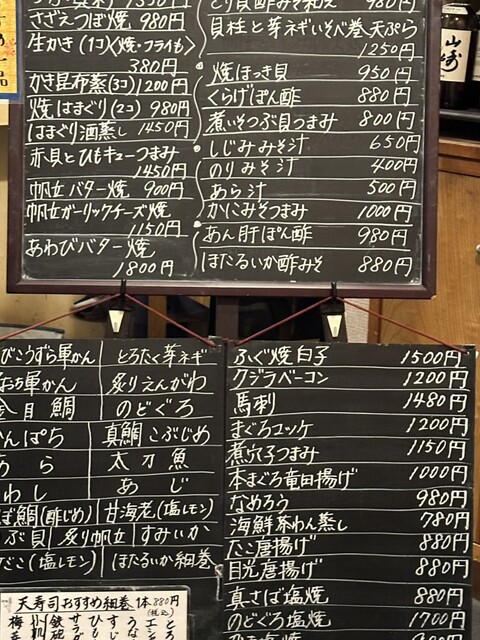 さざえつぼ焼 980円
生かき(1コ)<焼・フライも>
380円
かき昆布蒸(3コ) 1200円
焼はまぐり(2コ) 980円
はまぐり酒蒸し 1450円
赤貝とひもキューつまみ
1450円
帆立バター焼 900円
帆立ガーリックチーズ焼
1150円
あわびバター焼
1800円
980円
貝柱と芽ネギいそべ巻天ぷら
1250円
焼ほっき貝 950円
くらげぽん酢 880円
煮いそつぶ貝つまみ 800円
しじみみそ汁 650円
のりみそ汁 400円
あら汁 500円
かにみそつまみ 1000円
あん肝ぽん酢 980円
ほたるいか酢みそ 880円
びこうずら軍かん とろたく芽ネギ
軍かん 炙りえんがわ
金目鯛 のどぐろ
んぱち 真鯛こぶじめ
あら 太刀魚
わし あじ
ば鯛(酢じめ) 甘海老(塩レモン)
ぶ貝 炙り帆立 すみいか
だこ(塩レモン) ほたるいか細巻
ふぐ焼白子 1500円
クジラベーコン 1200円
馬刺 1480円
まぐろユッケ 1200円
煮穴子つまみ 1150円
本まぐろ竜田揚げ 1000円
なめろう 980円
海鮮茶わん蒸し 780円
たこ唐揚げ 880円
目光唐揚げ 880円
真さば塩焼 880円
のどぐろ塩焼 1700円
天寿司おすすめ細巻 1本880円
(税込)